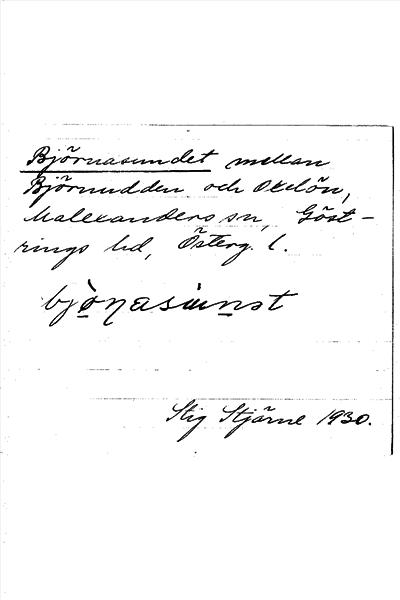 Björnasundet mellan
Björnudden och Ekelön,
Malexanders sn, Göst-
rings hd, Österg. l.
bjò̱ŋasùṉət
Stig Stjärne 1930.